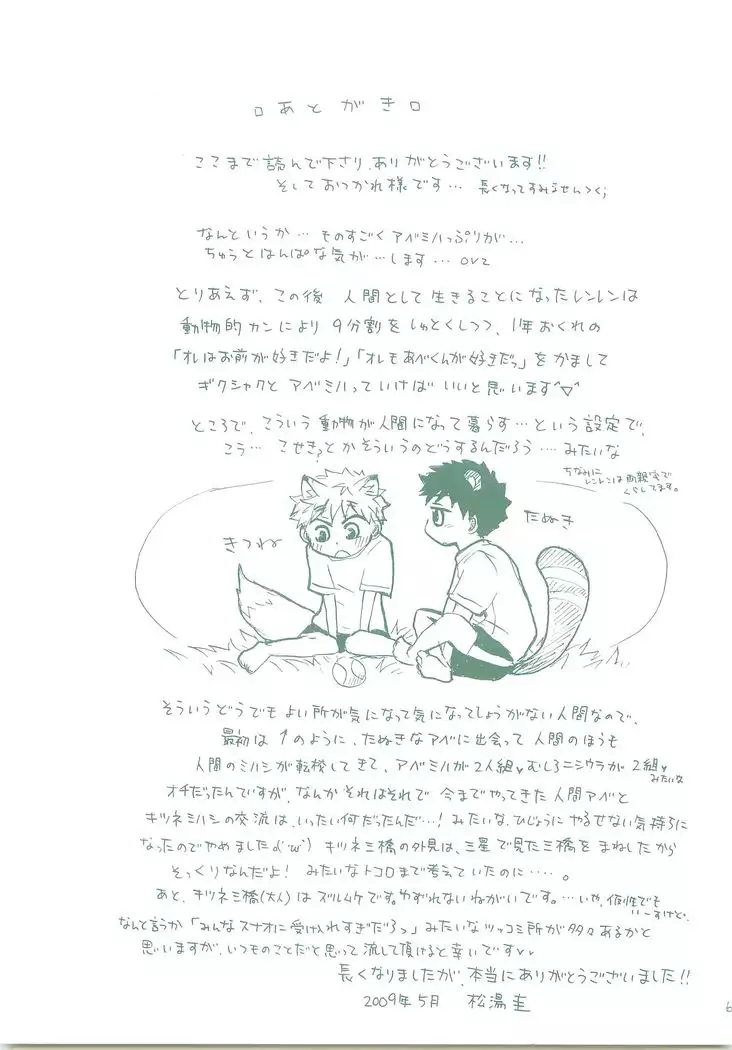 □あとがき□
ここまで読んで下さり、ありがとうございます!!
そしておつかれ様です… 長くなってすみません
なんというか… ものすごくアベミハっぷりが…
ちゅうとはんぱな気が…します… orz
とりあえず、この後 人間として生きることになったレンレンは
動物的カンにより 9分割をしゅとくしつつ、1年おくれの
「オレはお前が好きだよ!」「オレもあべくんが好きだっ」をかまして
ギクシャクと アベミハっていけば いいと思います^▽^
ところで、こういう動物が人間になって暮らす…という設定で、
こう… こせき?とかそういうのどうするんだろう…. みたいな
ちなみに
レンレンは両親宅で
くらしてます。
きつね
たぬき
そういうどうでもよい所が気になって気になってしょうがない人間なので、
最初は ↑のように、たぬきなアベに出会って 人間のほうも
人間のミハシが転校してきて、アベミハが2人組♥むしろニシウラが2組♥
みたいな
オチだったんですが、なんかそれはそれで 今までやってきた人間アベと
キツネミハシの交流は、いったい何だったんだ…! みたいな、ひじょうに やるせない気持ちに
なったのでやめました キツネ三橋の外見は、三星で見た三橋をまねしたから
そっくりなんだよ! みたいなトコロまで考えていたのに….。
なんと言うか「みんなスナオに受け入れすぎだろっ」みたいなツッコミ所が多々あるかと
思いますが、いつものことだと思って流して頂けると幸いです
長くなりましたが、本当にありがとうございました!!
2009年5月 松湯圭
6